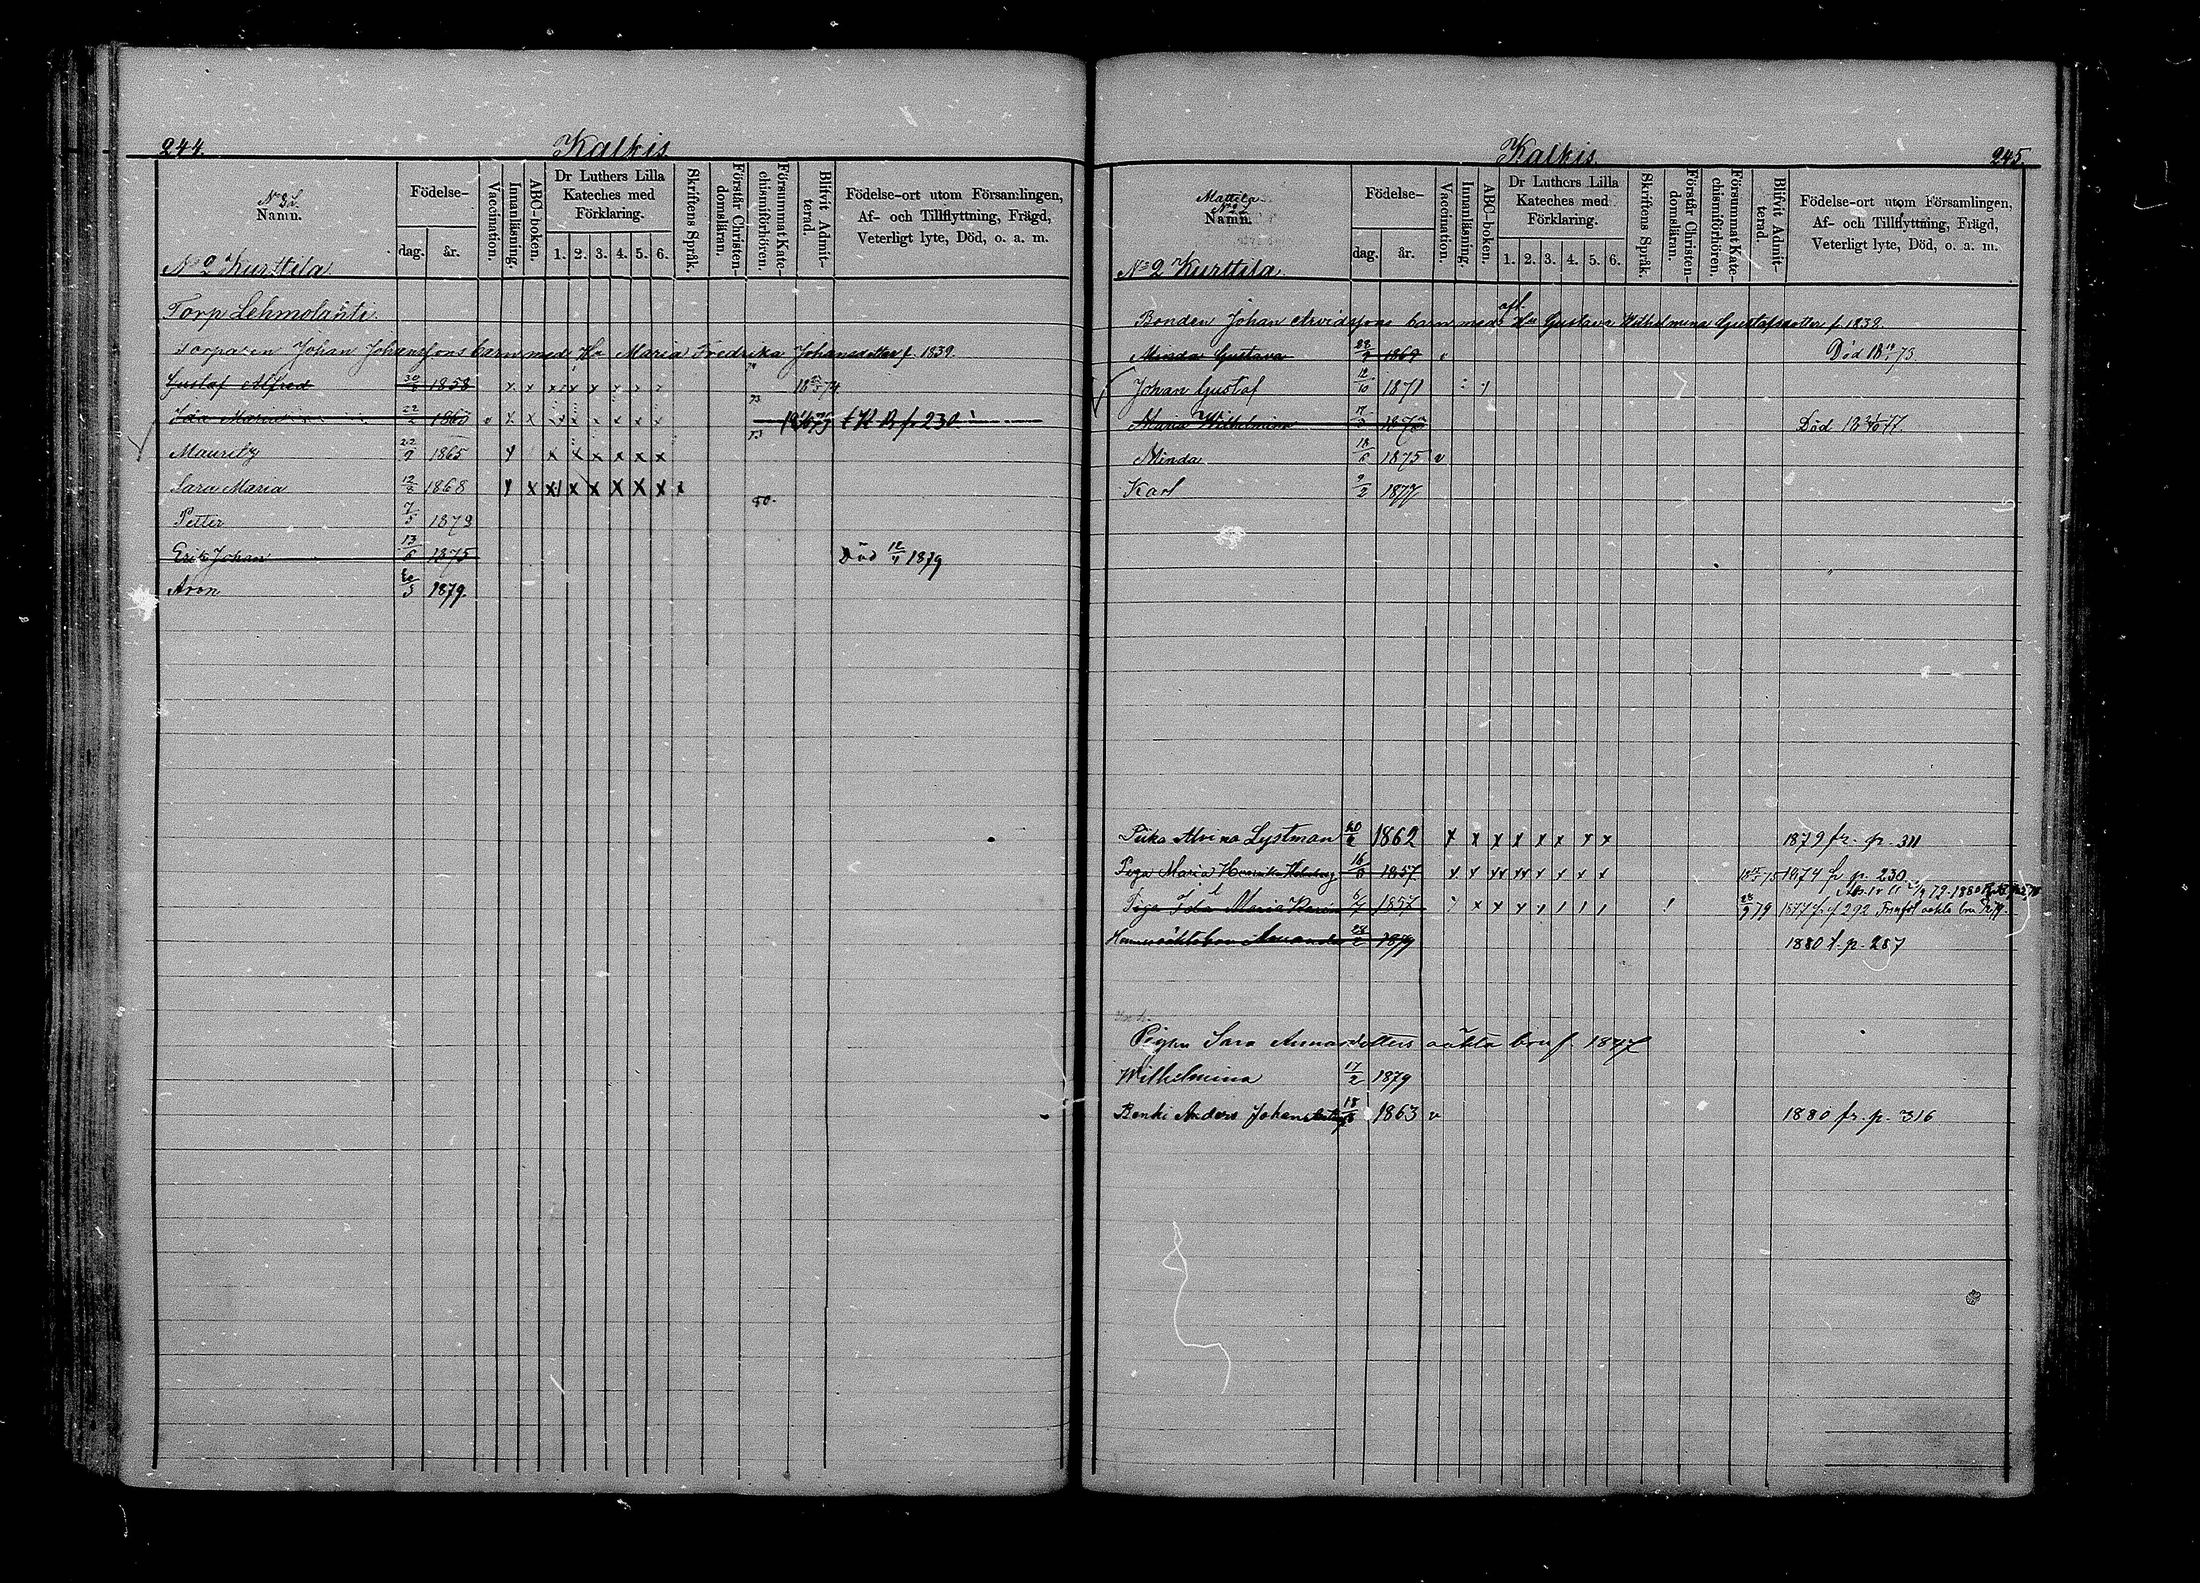 244.
Kalkis.
Namn.
Födelse-
dag. år.
Vaccination.
Innanläsning.
ABC-boken.
Dr Luthers Lilla
Kateches med
Förklaring.
1. 2. 3. 4. 5. 6.
Skriftens Språk.
Förstår Christen-
domsläran.
Försummat Kate-
chismiförhören.
Blifvit Admit-
terad.
Födelse-ort utom Församlingen,
Af- och Tillflyttning, Frägd,
Veterligt lyte, Död, o. a. m.
No 2 Kurttila
Torp Lehmolahti.
Torparen Johan Johanssons barn med Hu Maria Fredrika Johansdotter f. 1839.
Gustaf Alfred 1858 x x x x x x x x
Ida Maria 22/2 1860 v x x x x x x x x t K B p 230
Mauritz 22/9 1865 x x x x x x
Sara Maria 12/8 1868 x x x x x x x 80.
Petter 7/5 1872
Erik Johan 13/6 1875 Död 1879
Aron 1879.
Kalkis.
245.
Mattila
No 2
Namn.
Födelse-
dag. år.
Vaccination.
Innanläsning.
ABC-boken.
Dr Luthers Lilla
Kateches med
Förklaring.
1. 2. 3. 4. 5. 6.
Skriftens Språk.
Förstår Christen-
domsläran.
Försummat Kate-
chismiförhören.
Blifvit Admit-
terad.
Födelse-ort utom Församlingen,
Af- och Tillflyttning, Frägd,
Veterligt lyte, Död, o. a. m.
No 2 Kurttila
Bonden Johan Arvidssons barn med afl. Hu Gustava Wilhelmina Gustafsdotter f. 1838.
Minda Gustava 1869 v Död
Johan Gustaf 12/10 1871
Maria Wilhelmina Död
Minda 18/6 1875 v
Karl 9/2 1877
Piika Alvina Lystman 1862 x x x x x x x x 1879 fr. p. 311
Piga Maria 1857 1874 fr p. 230
Piga Ida Maria 1857 1877 fr. p 292
Amanda 1879 1880 t. p. 287
Pigan Sara Annasdotters oäkta br. f. 1847
Wilhelmina 17/2 1879
Renki Anders 1863 v 1880 fr. p. 316